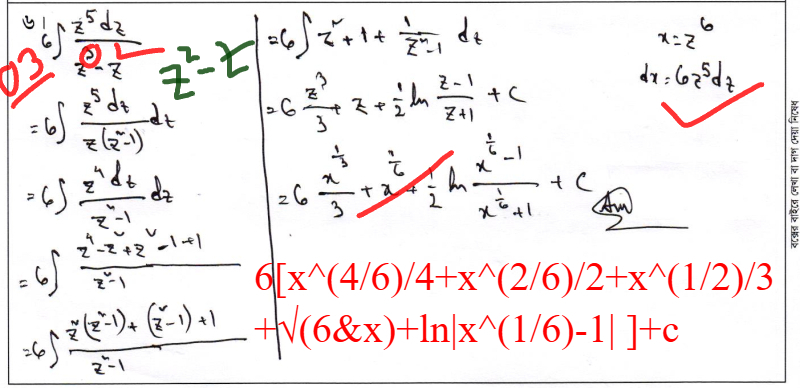 6∫ z⁵ dz / z³ - z
03
z² - z
= 6∫ z⁵ dz / z(z² - 1) dz
= 6∫ z⁴ dz / z² - 1 dz
= 6∫ z⁴ - z² + z² - 1 + 1 / z² - 1
= 6∫ z²(z² - 1) + (z² - 1) + 1 / z² - 1
= 6∫ z² + 1 + 1/z² - 1 dz
= 6 z³/3 + z + 1/2 ln z - 1 / z + 1 + c
= 6 x^1/3 / 3 + x^1/6 + 1/2 ln x^1/6 - 1 / x^1/6 + 1 + c
Am
x = z⁶
dx = 6z⁵dz
6[x^(4/6)/4+x^(2/6)/2+x^(1/2)/3
+√(6&x)+ln|x^(1/6)-1| ]+c
বক্সের বাইরে লেখা বা দাগ দেয়া নিষেধ